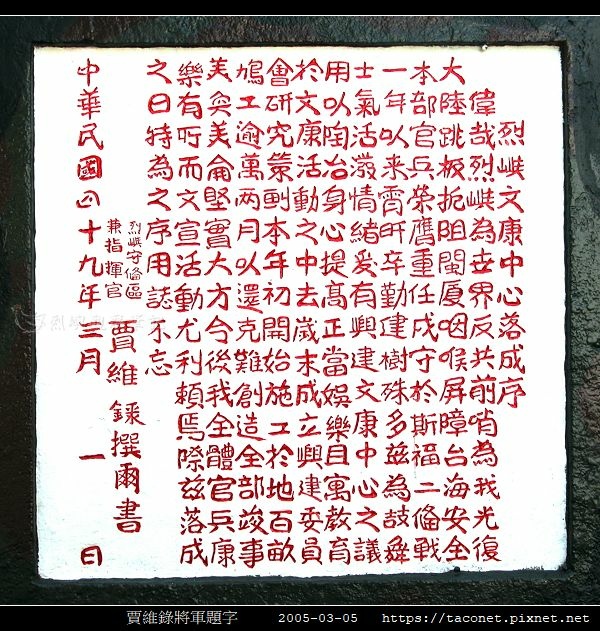 烈嶼文康中心落成序
偉哉烈嶼為世界反共前哨為我光復
大陸跳板扼阻閩厦咽喉屏障台海安全
本部官兵榮膺重任戍守於斯福二俻戰
一年以来宵旰辛勤建樹殊多茲為鼓舞
士氣活潑情緒爰有興建文康中心之議
用以陶冶身心提髙正當娛樂且寓教育
於文康活動之中去歲末成立興建委員
會研究策劃本年初開始施工於地百畝
鳩工逾萬两月以還克難創造全部竣事
美奐美侖堅實大方今後我全體官兵康
樂有所而文宣活動尤利頼焉際兹落成
之日特為之序用誌不忘
烈嶼守俻區
兼指揮官
賈維錄撰爾書
中華民國四十九年三月一日
賈維錄將軍題字 2005-03-05 https://taconet.pixnet.net